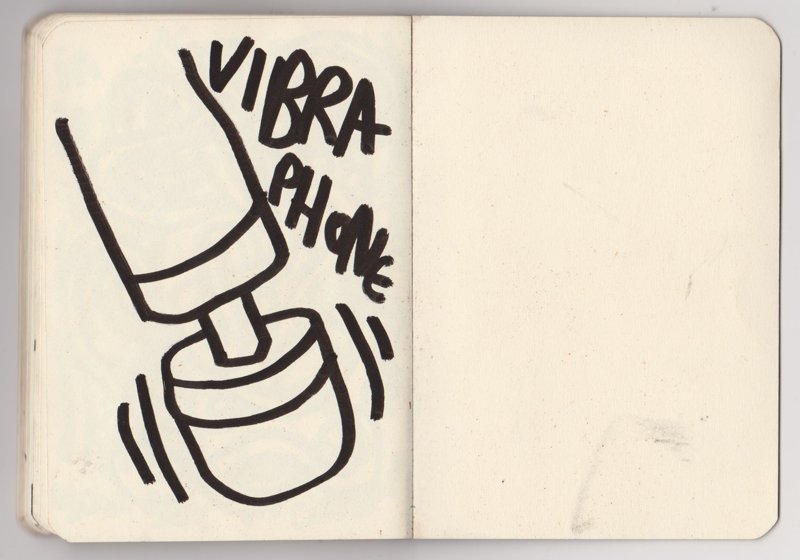 VIBRA
PHONE